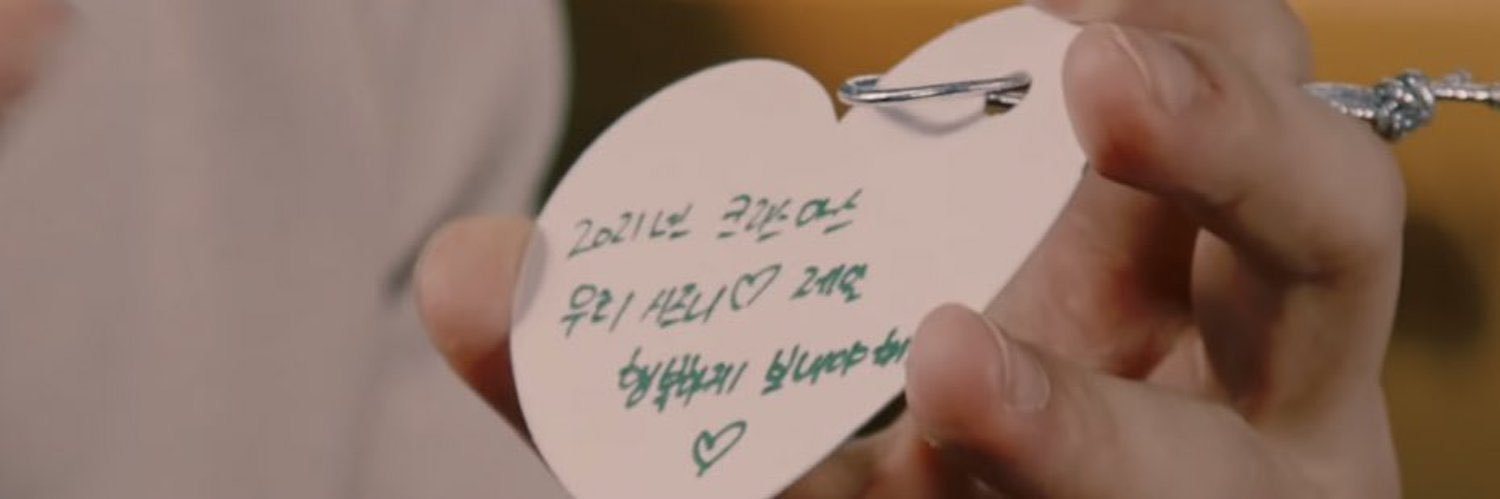 2021년 크리스마스
우리 시즈니♡ 제일
행복하게 보내야 해
♡